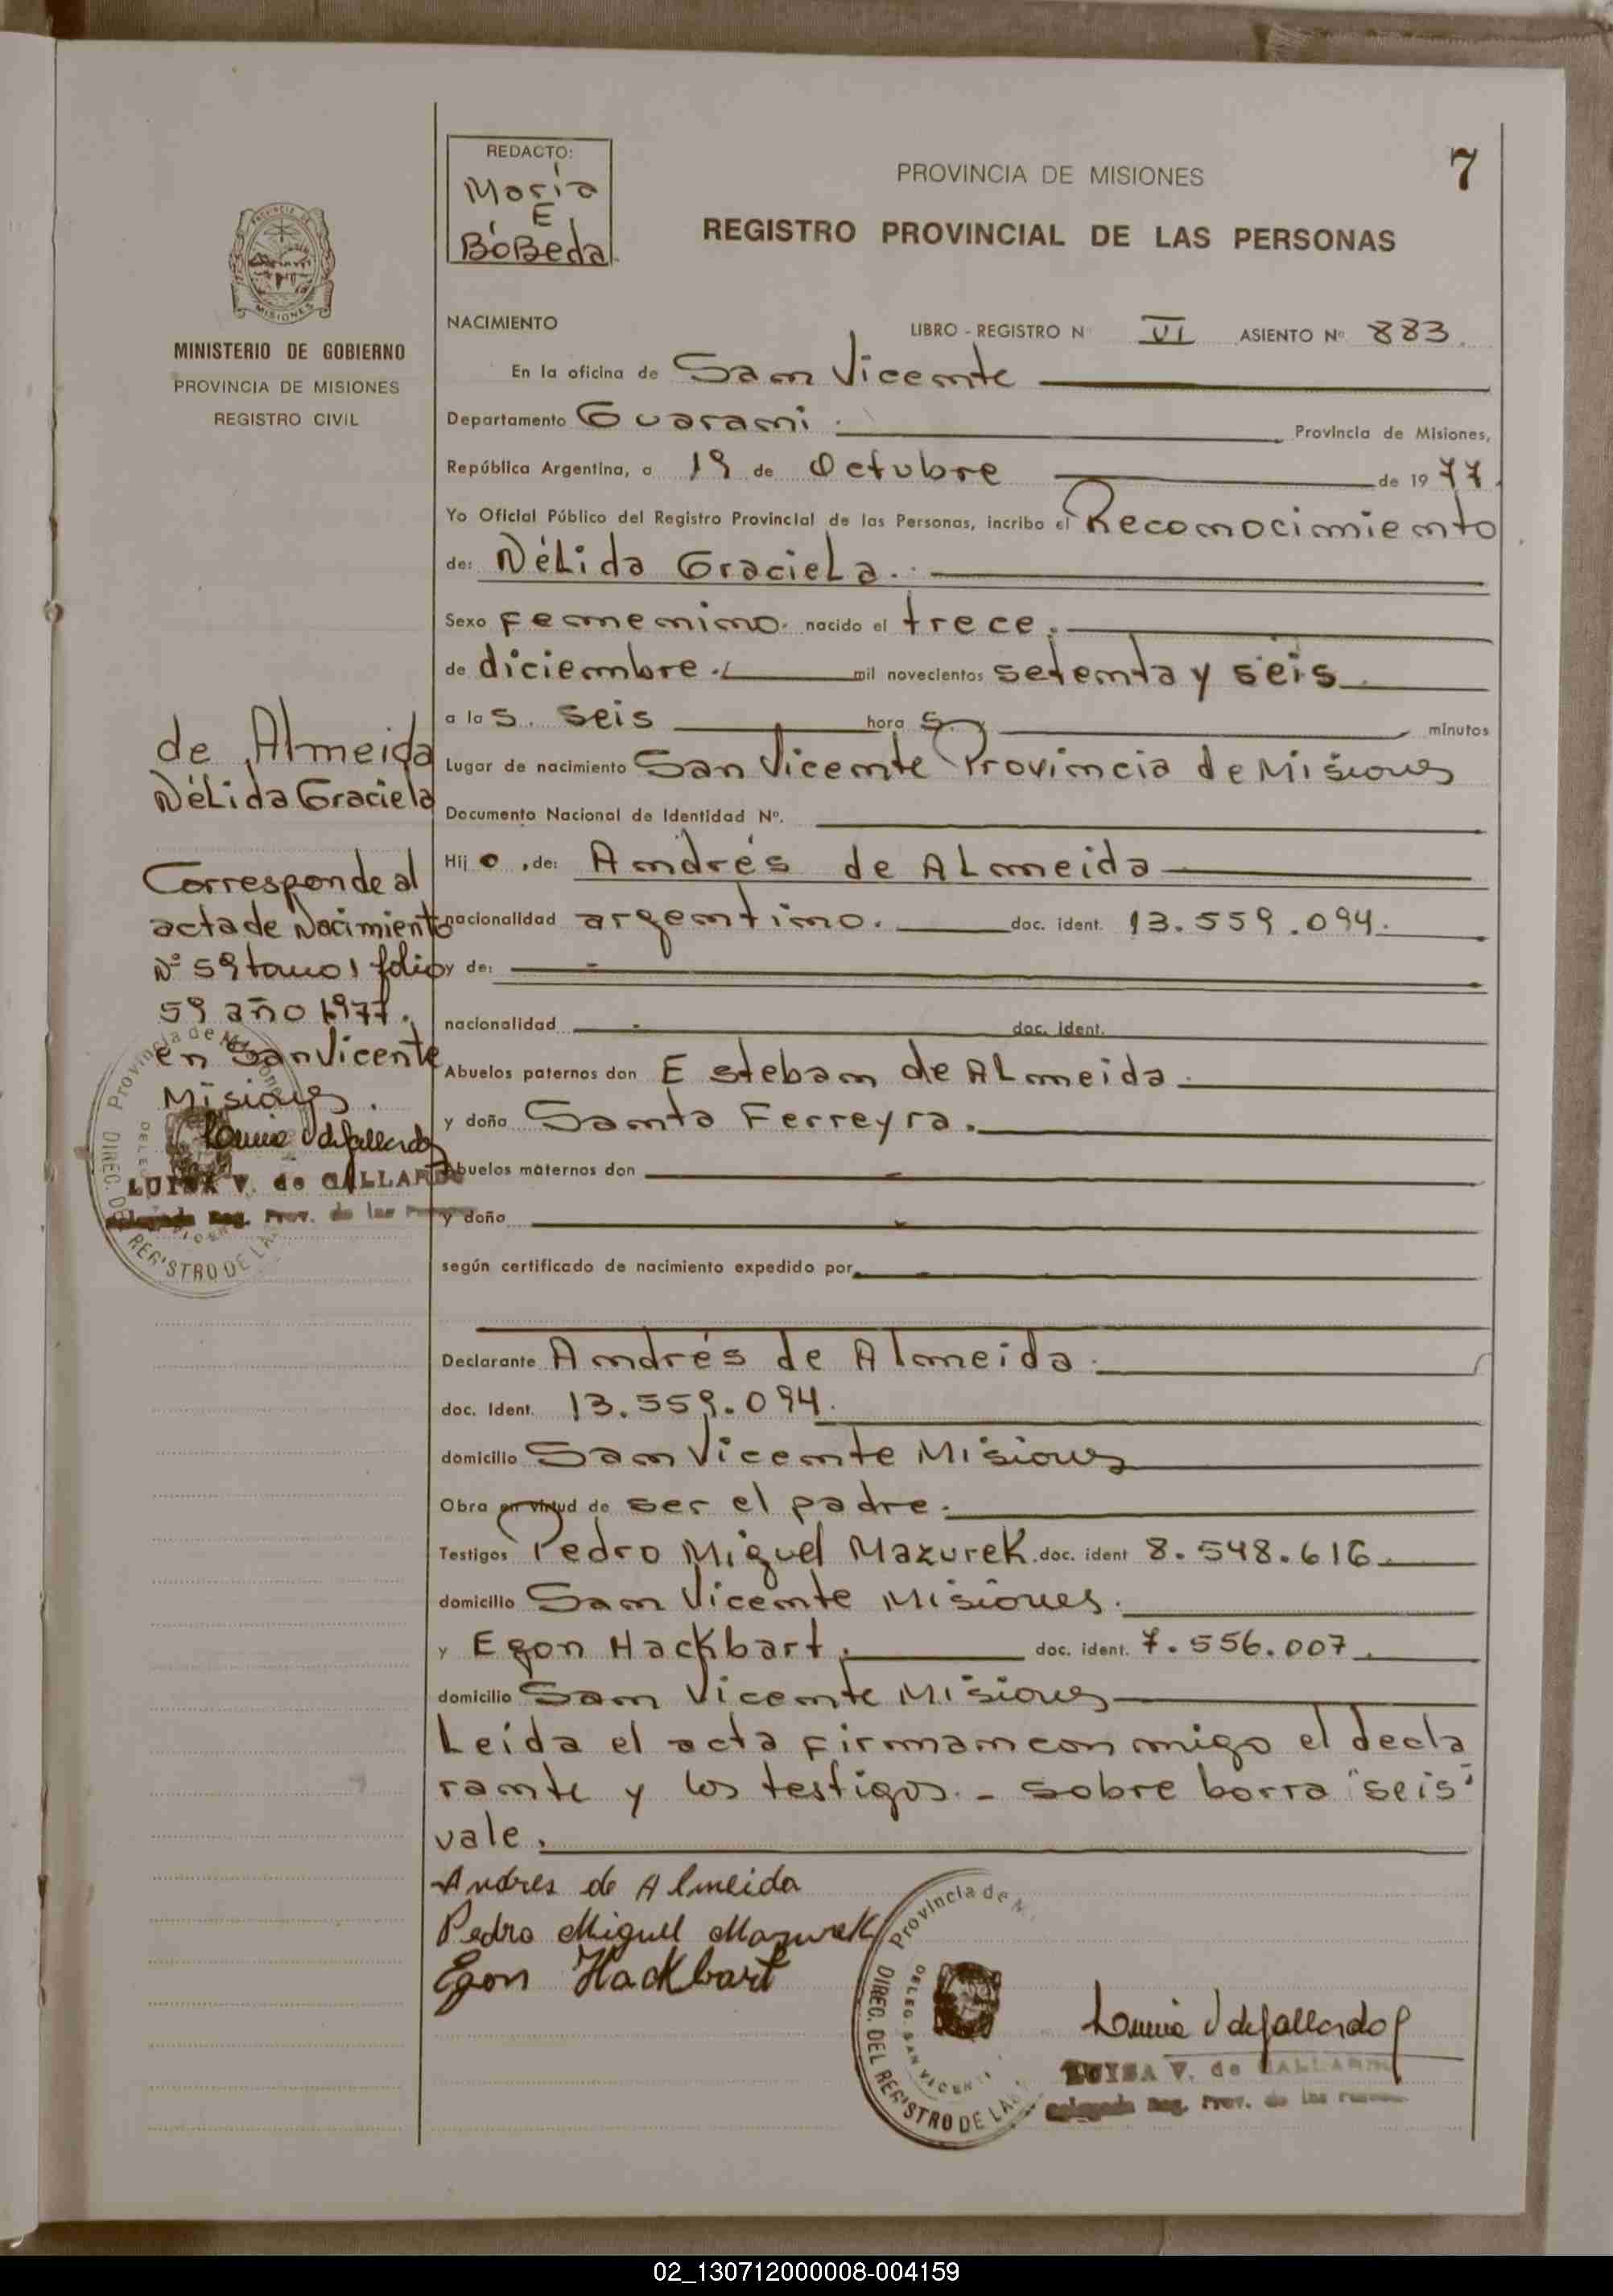 7
REDACTO:
María
E
BóBeda.
PROVINCIA DE MISIONES
REGISTRO PROVINCIAL DE LAS PERSONAS
MISIONES
MINISTERIO DE GOBIERNO
PROVINCIA DE MISIONES
REGISTRO CIVIL
NACIMIENTO LIBRO - REGISTRO Nº VI ASIENTO Nº 883.
En la oficina de San Vicente
Departamento Guarani. Provincia de Misiones,
República Argentina, a 19 de Octubre de 1977.
Yo Oficial Público del Registro Provincial de las Personas, incribo el Reconocimiento
de: NéLida GracieLa.
Sexo femenino. nacido el trece.
de diciembre. mil novecientos setenta y seis
a las. seis horas minutos
Lugar de nacimiento San Vicente Provincia de Misiones
Documento Nacional de Identidad Nº.
Hijo, de: Andrés de ALmeida
nacionalidad argentino. doc. ident. 13.559.094.
y de: -
nacionalidad - doc. ident.
Abuelos paternos don Esteban de ALmeida.
y doña Santa Ferreyra.
Abuelos maternos don
y doña
según certificado de nacimiento expedido por
Declarante Andrés de Almeida.
doc. Ident. 13.559.094.
domicilio San Vicente Misiones
Obra en virtud de ser el padre.
Testigos Pedro Miguel Mazurek. doc. ident 8.548.616
domicilio San Vicente Misiones.
y Egon Hackbart. doc. ident. 7.556.007.
domicilio San Vicente Misiones
Leída el acta firman con migo el decla
rante y los testigos. - sobre borra "seis"
vale.
Andres de Almeida
Pedro Miguel Mazurek
Egon Hackbart
Provincia de M
DIREC. DEL REGISTRO DE LA
DELEG. SAN VICENTE
LUISA V. de GALLARDO
Reg. Prov. de las
de Almeida
NéLida Graciela
Corresponde al
acta de Nacimiento
Nº 59 tomo 1 folio
59 año 1977.
en San Vicente
Misiones.
Provincia de Misiones
DIREC. D REGISTRO DE LA
LUISA V. de GALLARDO
Reg. Prov. de las
02_130712000008-004159